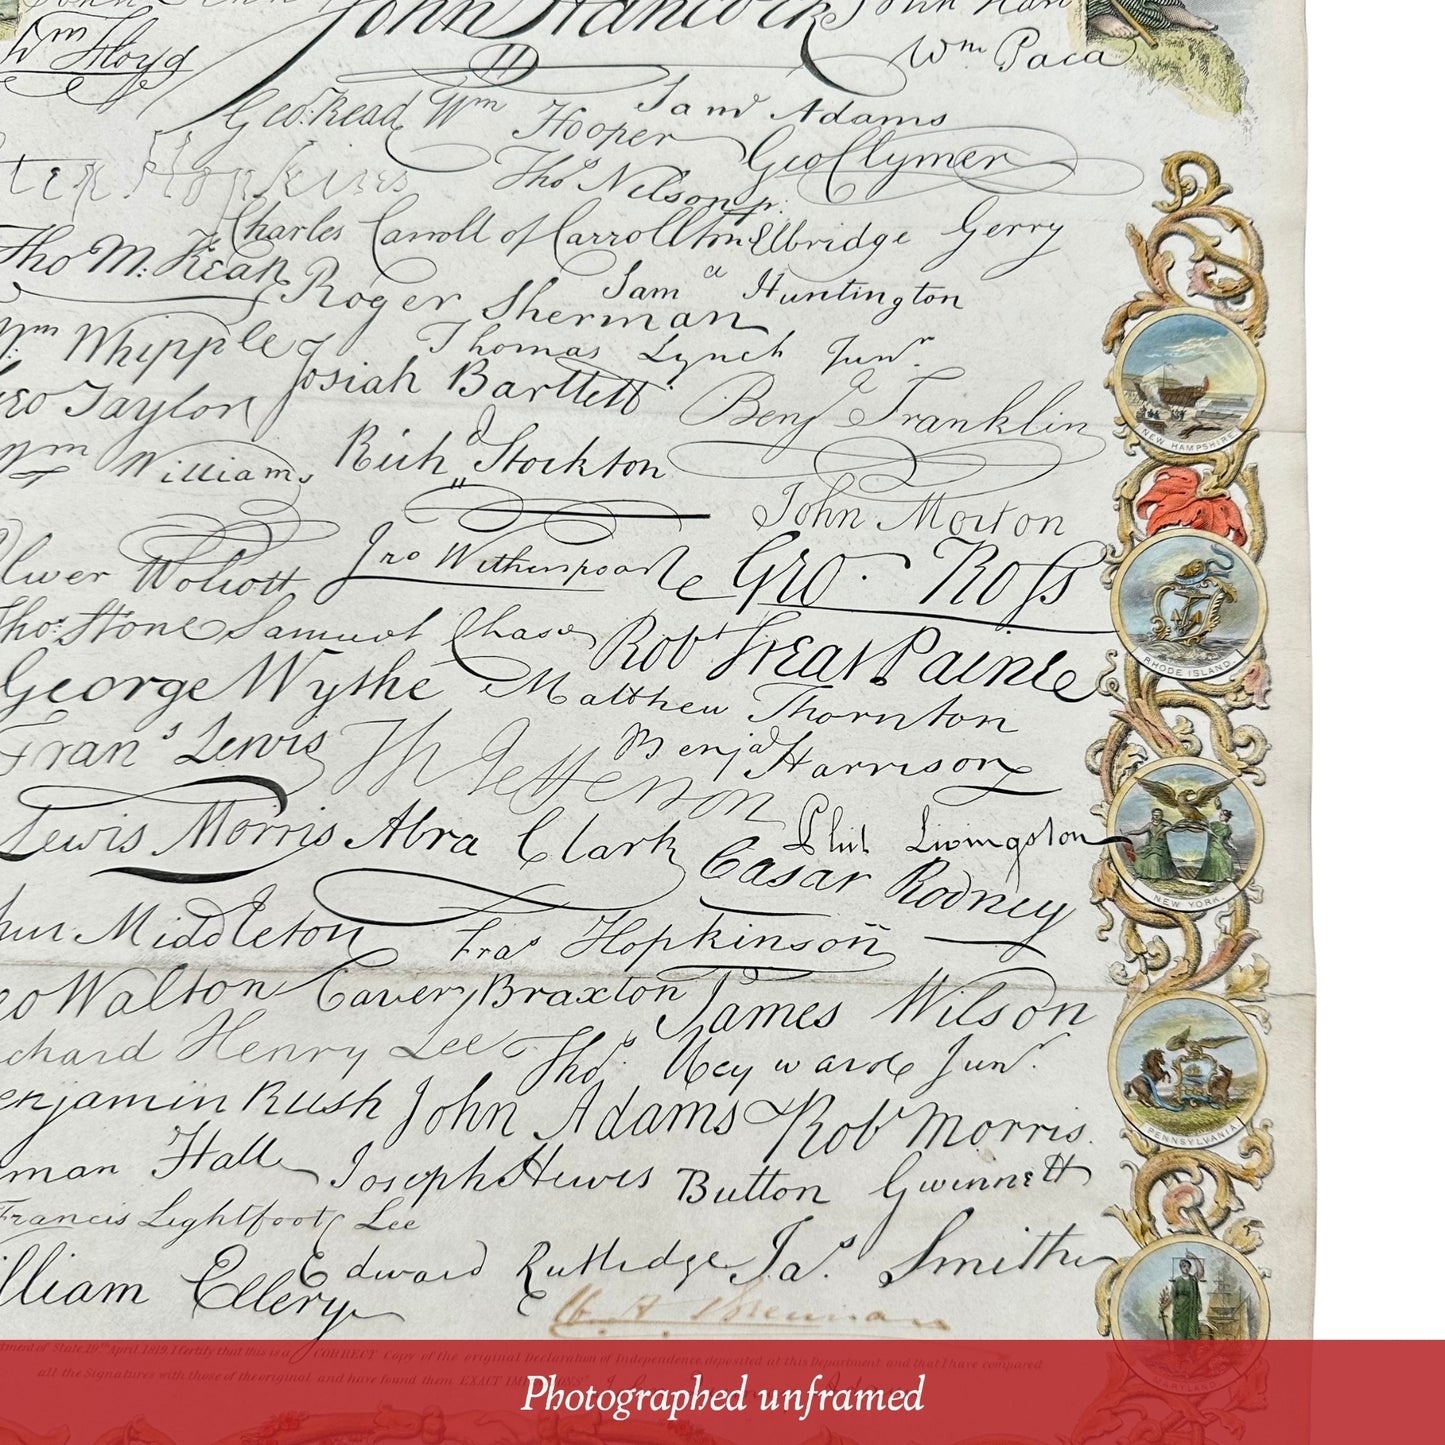 John Hancock
Wm Floyd
Wm Paca
Geo: Read Wm Hooper Saml Adams
Geo Clymer
Step. Hopkins Thos Nelson jr.
Charles Carroll of Carrollton Elbridge Gerry
Tho M: Kean Roger Sherman Saml Huntington
Wm Whipple Thomas Lynch Junr
Geo Taylor Josiah Bartlett Benj Franklin
Wm Williams Richd Stockton
John Morton
Oliver Wolcott Jno Witherspoon Geo. Ross
Thos. Stone Samuel Chase Robt Treat Paine
George Wythe Matthew Thornton
Frans Lewis Th Jefferson Benja Harrison
Lewis Morris Abra Clark Phil Livingston
Cæsar Rodney
hur Middleton Fras Hopkinson
eo Walton Carter Braxton James Wilson
chard Henry Lee Thos Heyward Junr.
enjamin Rush John Adams Robt Morris
man Hall Joseph Hewes Button Gwinnett
Francis Lightfoot Lee
illiam Ellery Edward Rutledge Jas. Smith
NEW HAMPSHIRE
RHODE ISLAND
NEW YORK
PENNSYLVANIA
MARYLAND
tment of State 19th April 1819 I Certify that this is a CORRECT Copy of the original Declaration of Independence, deposited at this Department and that I have compared
all the Signatures with those of the original and have found them EXACT
Photographed unframed